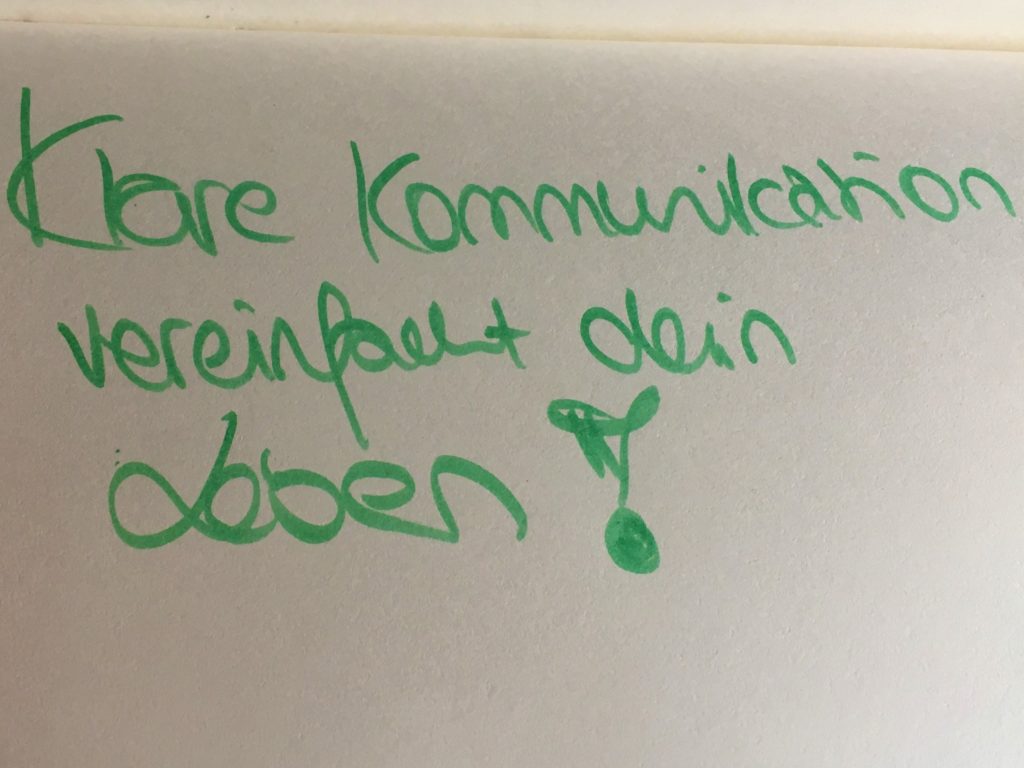 Klare Kommunikation
vereinfacht dein
Leben!